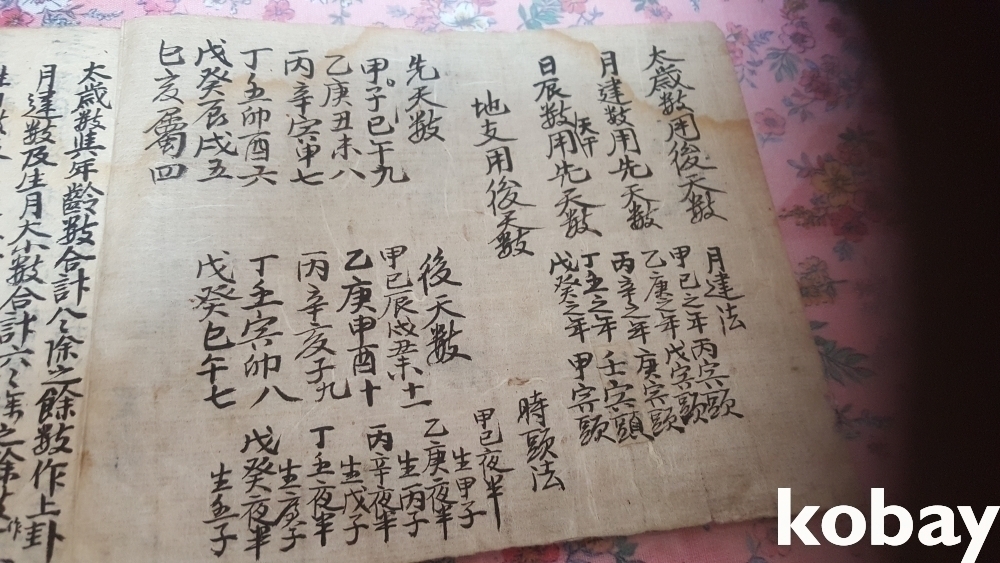 太歲數用後天數
月建數用先天數
日辰數天干用先天數
地支用後天數
先天數
甲己子午九
乙庚丑未八
丙辛寅申七
丁壬卯酉六
戊癸辰戌五
巳亥屬四
月建法
甲己之年丙寅頭
乙庚之年戊寅頭
丙辛之年庚寅頭
丁壬之年壬寅頭
戊癸之年甲寅頭
後天數
甲己辰戌丑未十一
乙庚申酉十
丙辛亥子九
丁壬寅卯八
戊癸巳午七
時頭法
甲己夜半生甲子
乙庚夜半生丙子
丙辛夜半生戊子
丁壬夜半生庚子
戊癸夜半生壬子
太歲數與年齡數合計八八除之餘數作上卦
月建數及生月大小數合計六六除之餘
kobay